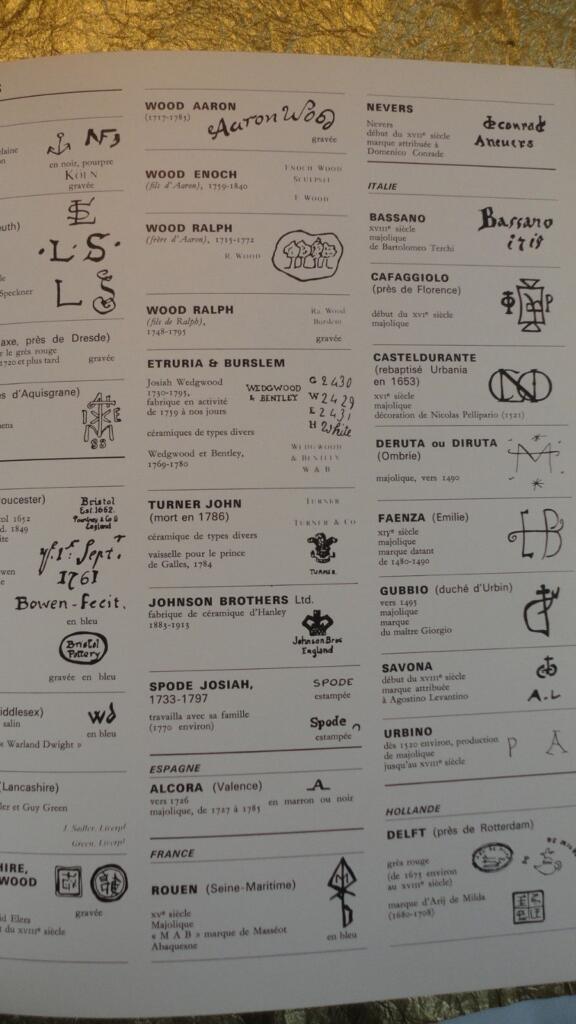 en noir, pourpre
KÖLN
gravée
L S
Speckner
axe, près de Dresde)
le grès rouge
1720 et plus tard gravée
s d'Aquisgrane)
oucester)
Bristol
Est. 1652.
Pountney & Co Ltd
England
1652
d. 1849
7f. 1st Sept.r
1761
Bowen-fecit.
en bleu
Bristol
Pottery
gravée en bleu
iddlesex)
salin
en bleu
« Warland Dwight »
(Lancashire)
ler et Guy Green
J. Sadler, Liverpl
Green, Liverpl
HIRE,
WOOD
gravée
id Elers
t du XVIIIe siècle
WOOD AARON
(1717-1785)
Aaron Wood
gravée
WOOD ENOCH
(fils d'Aaron), 1759-1840
ENOCH WOOD
SCULPSIT
E WOOD
WOOD RALPH
(frère d'Aaron), 1715-1772
R. WOOD
WOOD RALPH
(fils de Ralph),
1748-1795
Ra. Wood
Burslem
gravée
ETRURIA & BURSLEM
Josiah Wedgwood
1730-1795,
fabrique en activité
de 1759 à nos jours
WEDGWOOD
& BENTLEY
G 2430
W 2429
E 2431
H White
céramiques de types divers
Wedgwood et Bentley,
1769-1780
WEDGWOOD
& BENTLEY
W & B
TURNER JOHN
(mort en 1786)
TURNER
TURNER & CO
céramique de types divers
vaisselle pour le prince
de Galles, 1784
TURNER
JOHNSON BROTHERS Ltd.
fabrique de céramique d'Hanley
1883-1913
Johnson Bros
England
SPODE JOSIAH,
1733-1797
SPODE
estampée
travailla avec sa famille
(1770 environ)
Spode
estampée
ESPAGNE
ALCORA (Valence)
A
vers 1726
majolique, de 1727 à 1785
en marron ou noir
FRANCE
ROUEN (Seine-Maritime)
XVe siècle
Majolique
« M A B » marque de Masséot
Abaquesne
en bleu
NEVERS
Nevers
début du XVIIe siècle
marque attribuée à
Domenico Conrade
deconrade
Aneuers
ITALIE
BASSANO
XVIIIe siècle
majolique
de Bartolomeo Terchi
Bassano
CAFAGGIOLO
(près de Florence)
début du XVIe siècle
majolique
CASTELDURANTE
(rebaptisé Urbania
en 1653)
XVIe siècle
majolique
décoration de Nicolas Pellipario (1521)
DERUTA ou DIRUTA
(Ombrie)
majolique, vers 1490
FAENZA (Emilie)
XIVe siècle
majolique
marque datant
de 1480-1490
GUBBIO (duché d'Urbin)
vers 1495
majolique
marque
du maître Giorgio
SAVONA
début du XVIIe siècle
marque attribuée
à Agostino Levantino
A.L
URBINO
dès 1520 environ, production
de majolique
jusqu'au XVIIIe siècle
P A
HOLLANDE
DELFT (près de Rotterdam)
grès rouge
(de 1675 environ
au XVIIIe siècle)
marque d'Arij de Milda
(1680-1708)